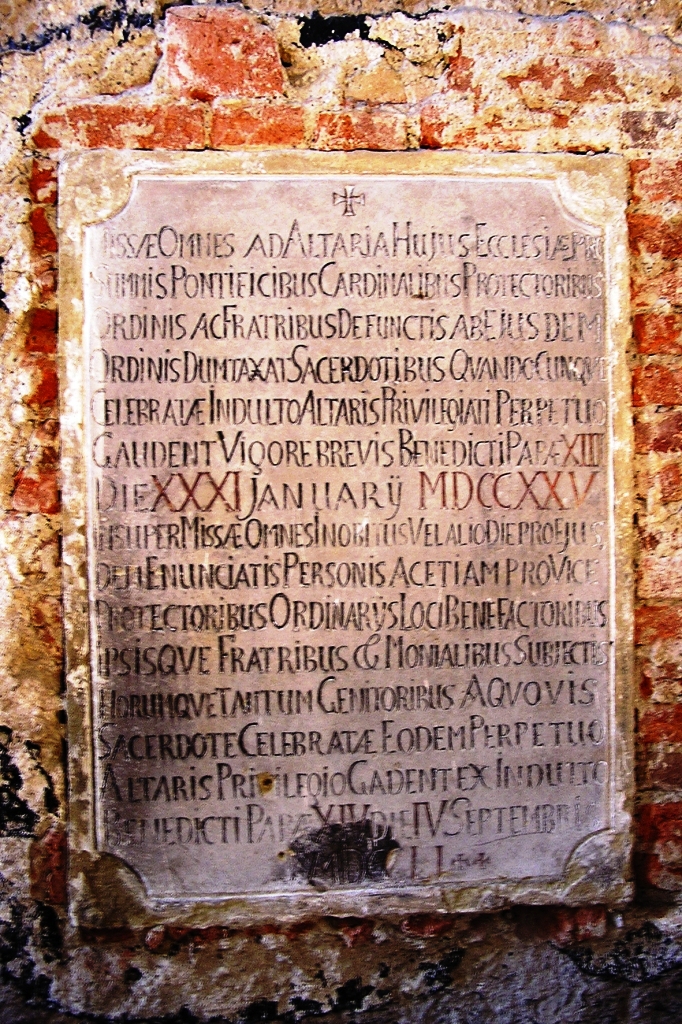 MISSÆ OMNES AD ALTARIA HUJUS ECCLESIÆ PRO
SUMMIS PONTIFICIBUS CARDINALIBUS PROTECTORIBUS
ORDINIS AC FRATRIBUS DEFUNCTIS AB EJUSDEM
ORDINIS DUMTAXAT SACERDOTIBUS QVANDOCUNQVE
CELEBRATÆ INDULTO ALTARIS PRIVILEGIATI PERPETUO
GAUDENT VIGORE BREVIS BENEDICTI PAPÆ XIII
DIE XXXI JANUARIJ MDCCXXV
INSUPER MISSÆ OMNES IN OBITUS VEL ALIO DIE PRO EJUS
DEM ENUNCIATIS PERSONIS AC ETIAM PRO VICE
PROTECTORIBUS ORDINARIJS LOCI BENEFACTORIBUS
IPSISQVE FRATRIBUS & MONIALIBUS SUBJECTIS
HORUMQVE TANTUM GENITORIBUS A QVOVIS
SACERDOTE CELEBRATÆ EODEM PERPETUO
ALTARIS PRIVILEGIO GADENT EX INDULTO
BENEDICTI PAPÆ XIV DIE IV SEPTEMBRIS